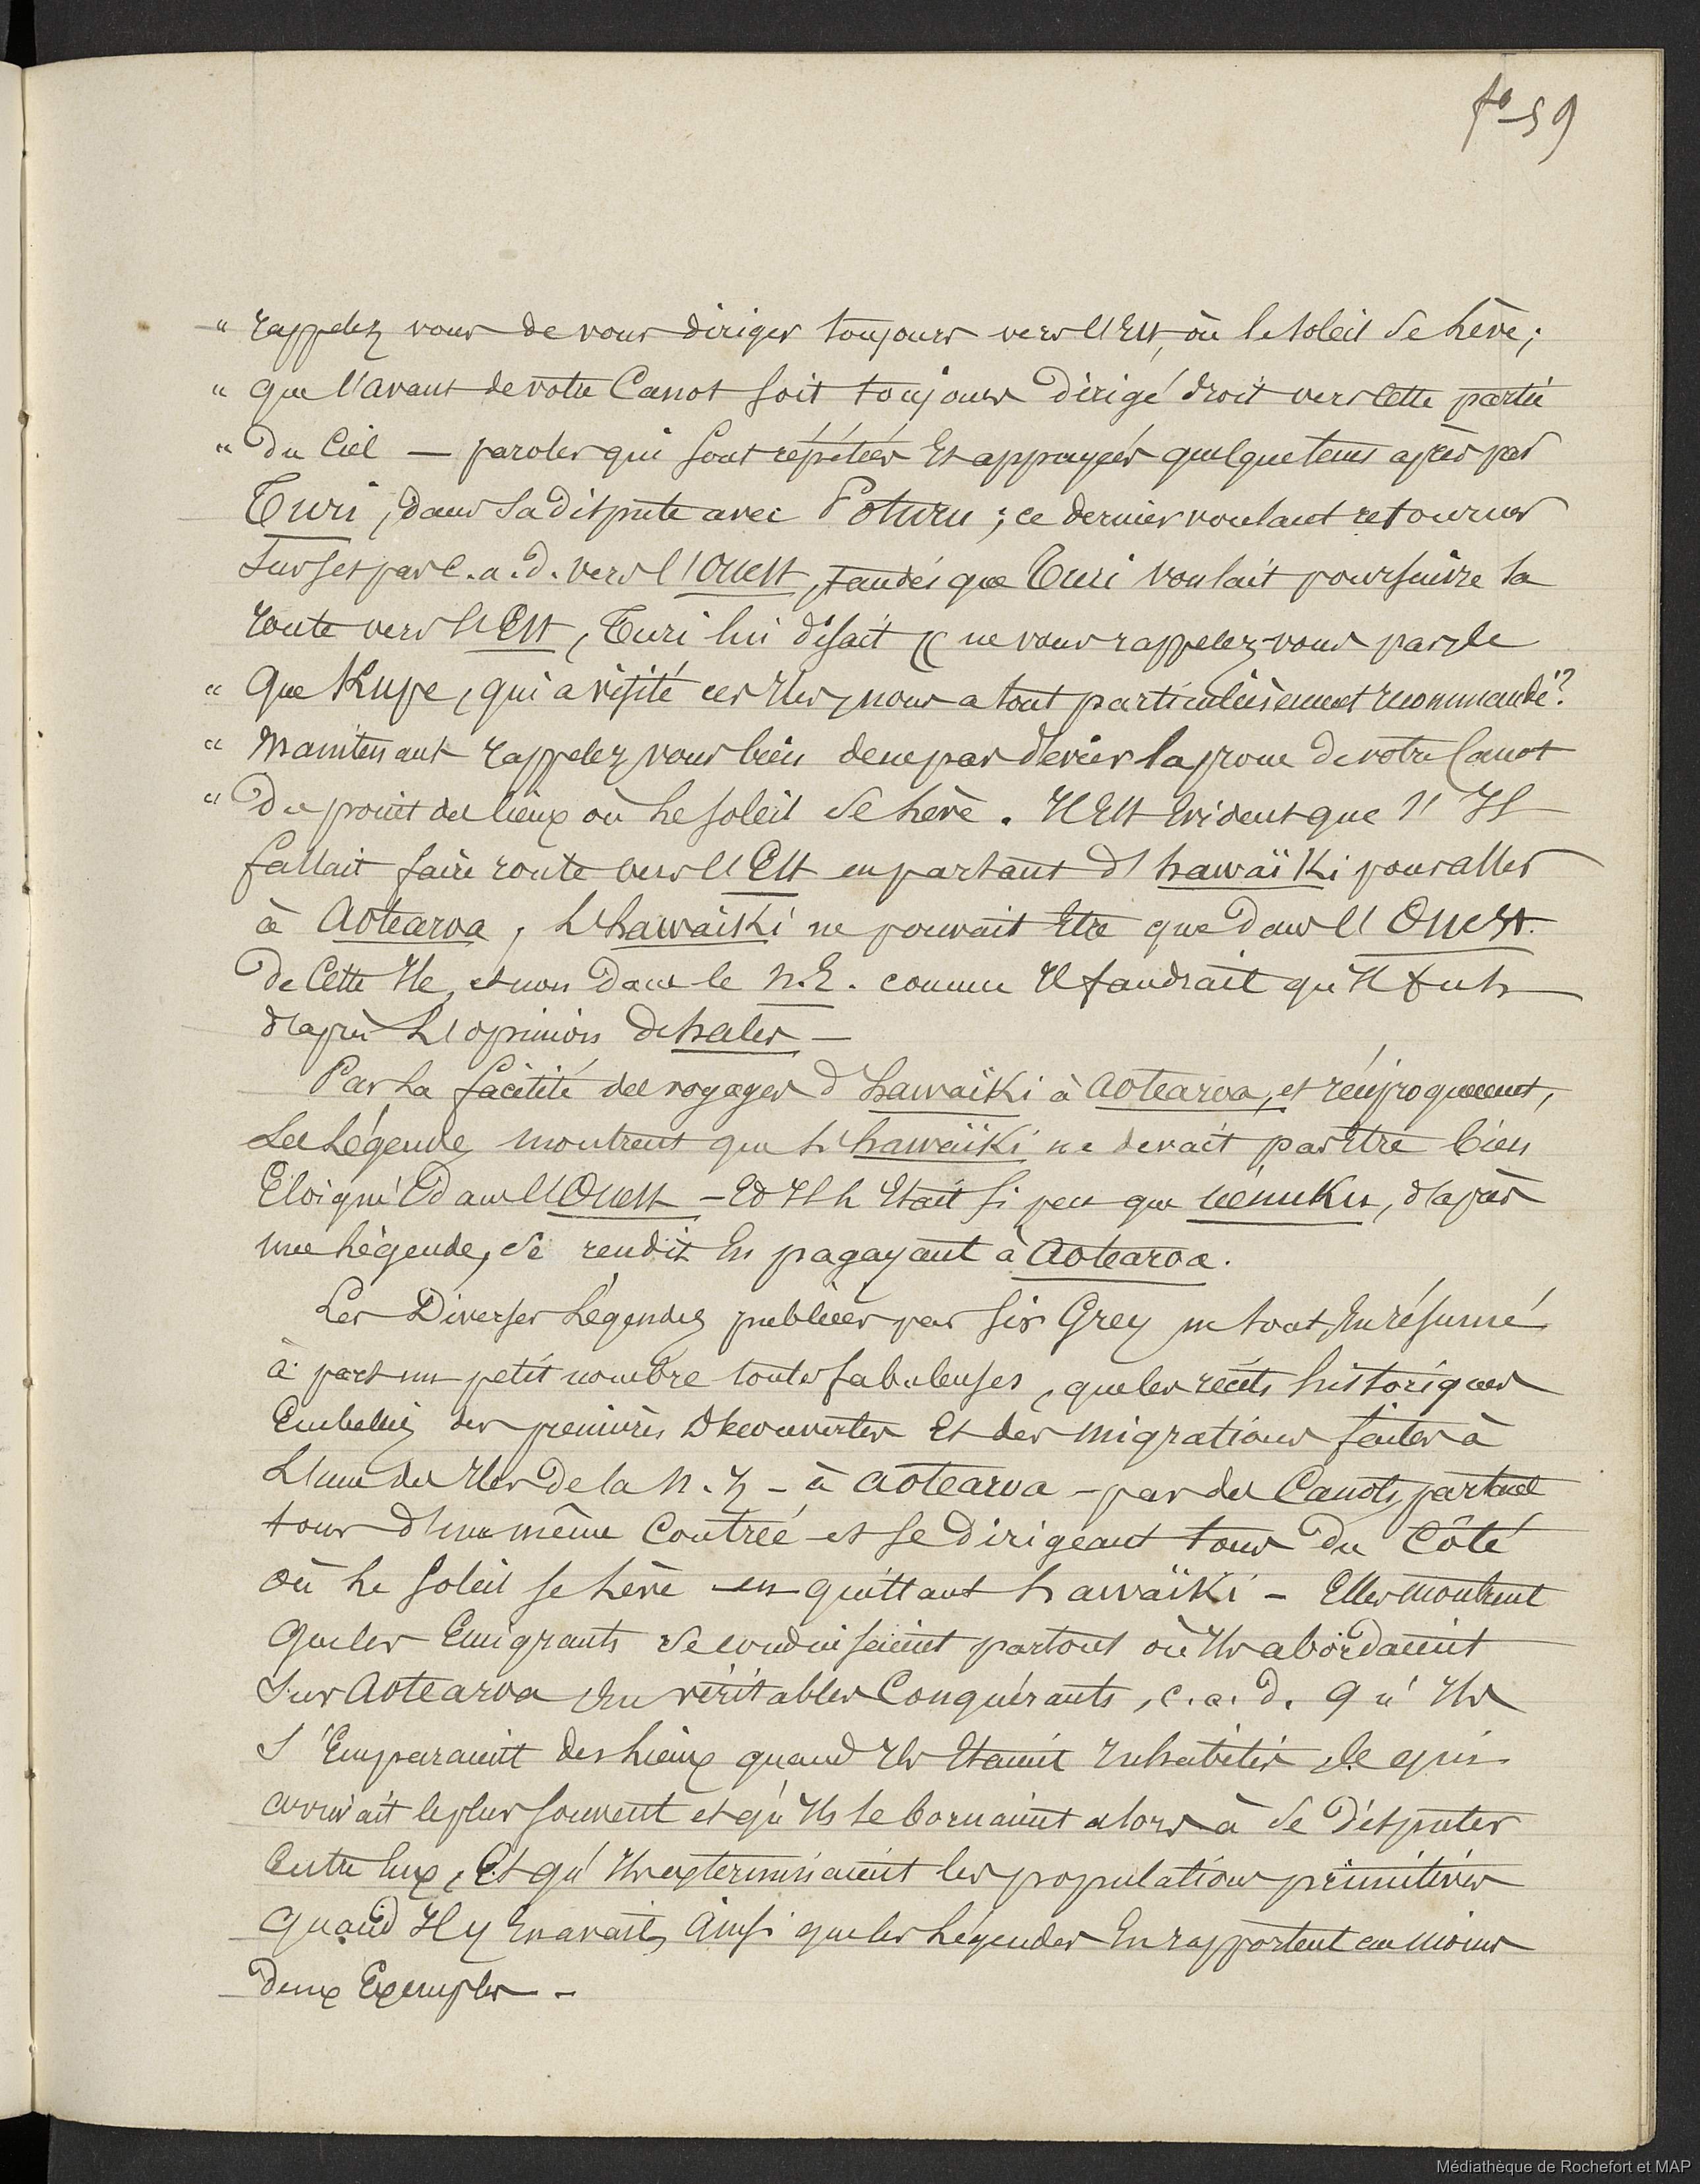 fo 59
" rappelez vous de vous diriger toujours vers l'Est, où le soleil se lève;
" que l'avant de votre Canot soit toujours dirigé droit vers cette partie
" du Ciel — paroles qui sont répétées Et appuyées quelque tems après par
Turi, dans sa dispute avec Poturu; ce dernier voulant retourner
sur ses pas c.a.d. vers l'Ouest, tandis que Turi voulait poursuivre sa
route vers l'Est, Turi lui disait « ne vous rappelez-vous pas, le
" que Kupe, qui a visité ces Iles, nous a tout particulièrement recommandé?
" Maintenant rappelez vous bien de ne pas dévier la proue de votre Canot
" du point des lieux où le soleil se lève. Il Est Evident que s'Il
fallait faire route vers l'Est en partant d'hawaïki pour aller
à Aotearoa, L'hawaïki ne pouvait Etre que dans l'Ouest.
de Cette Ile, et non dans le N.E. comme Il faudrait qu'Il fut
d'après L'opinion de hales —
Par La facilité des voyages d'hawaïki à Aotearoa, et réciproquement,
Les Légendes montrent que L'hawaïki ne devait pas Etre bien
Eloigné dans l'Ouest — Et Il l'Etait si peu que uénuku, d'après
une Légende, se rendit En pagayant à Aotearoa.
Les Diverses Légendes publiées par Sir Grey ne sont, En résumé
à part un petit nombre toutes fabuleuses, que les récits historiques
Embellis des premières Découvertes Et des migrations faites à
L'une des Iles de la N.Z — à Aotearoa — par des Canots, partant
tous d'une même Contrée et se dirigeant tous du Côté
où Le soleil se Lève en quittant hawaïki — Elles montrent
que les Emigrants se conduisaient partout où Ils abordaient
sur Aotearoa En véritables Conquérants, c.a.d. qu'Ils
s'Emparaient des Lieux quand Ils Etaient Inhabités, le qui
arrivait le plus souvent et qu'Ils se bornaient alors à se disputer
Entre Eux, Et qu'Ils exterminaient les populations primitives
quand Il y En avait, Ainsi que les Légendes En rapportent au moins
deux Exemples —
Médiathèque de Rochefort et MAP